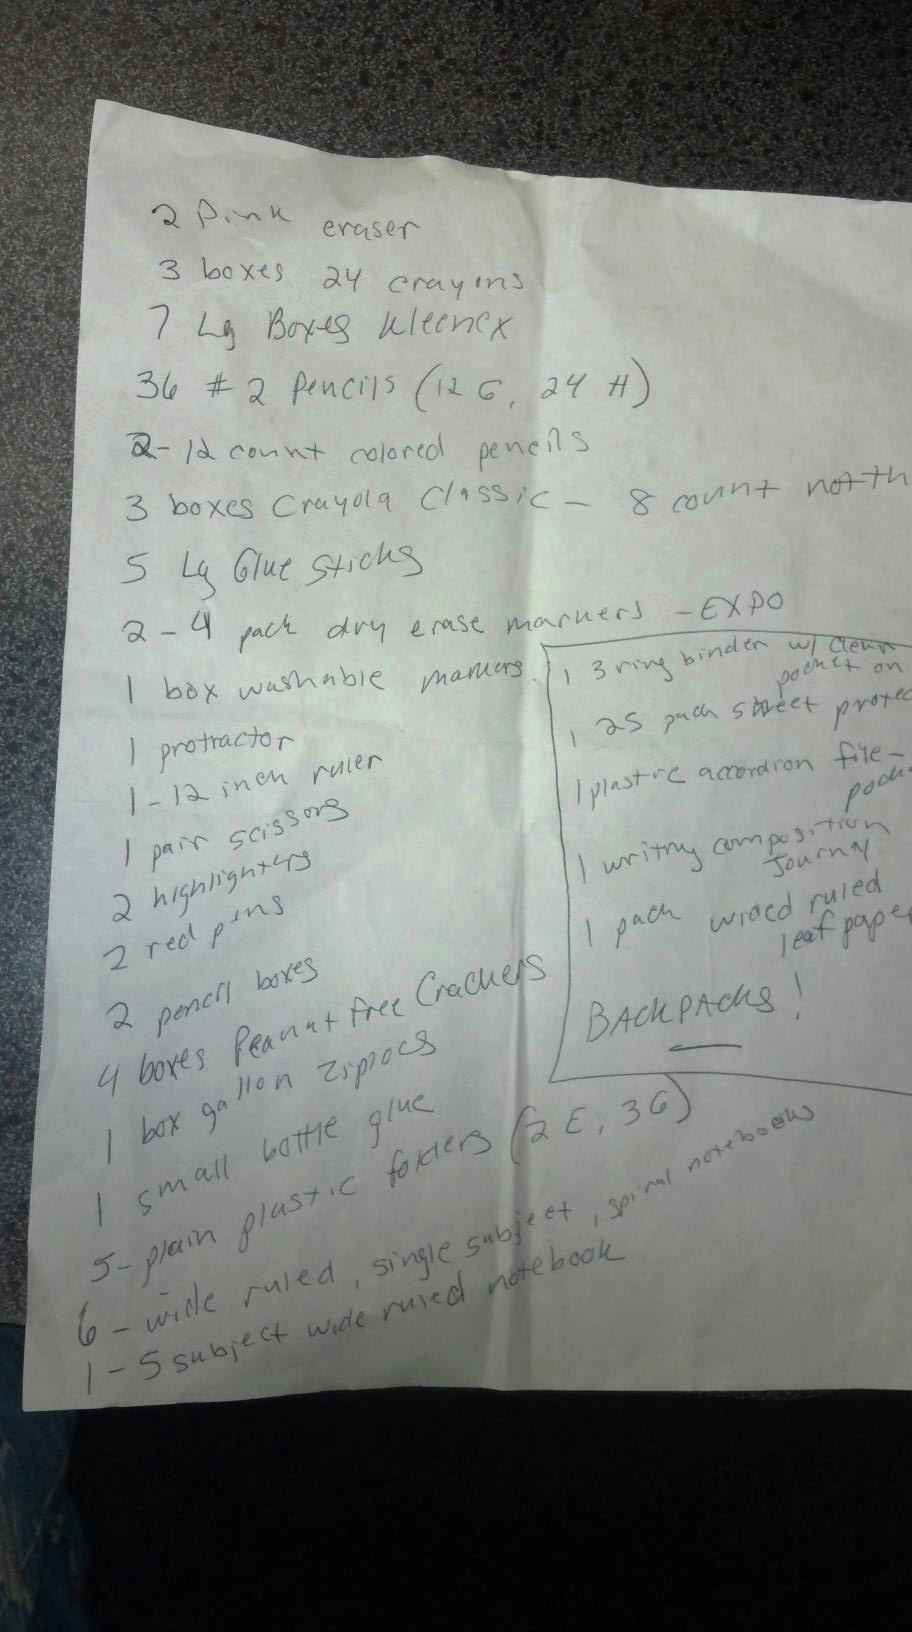 2 Pink eraser
3 boxes 24 crayons
7 Lg Boxes Kleenex
36 # 2 Pencils (12 G, 24 H)
2-12 count colored pencils
3 boxes Crayola Classic - 8 count not th
5 Lg Glue sticks
2-4 pack dry erase markers - EXPO
1 box washable markers
1 protractor
1-12 inch ruler
1 pair scissors
2 highlighters
2 red pens
2 pencil boxes
4 boxes Peanut free Crackers
1 box gallon Ziplocs
1 small bottle glue
5- plain plastic folders (2 E, 3G)
6 - wide ruled, single subject, spiral notebooks
1-5 subject wide ruled notebook
1 3 ring binder w/ clear
pocket on
1 25 pack sheet protec
1 plastic accordion file -
pock
1 writing composition
Journal
1 pack wided ruled
leaf paper
BACKPACKS!